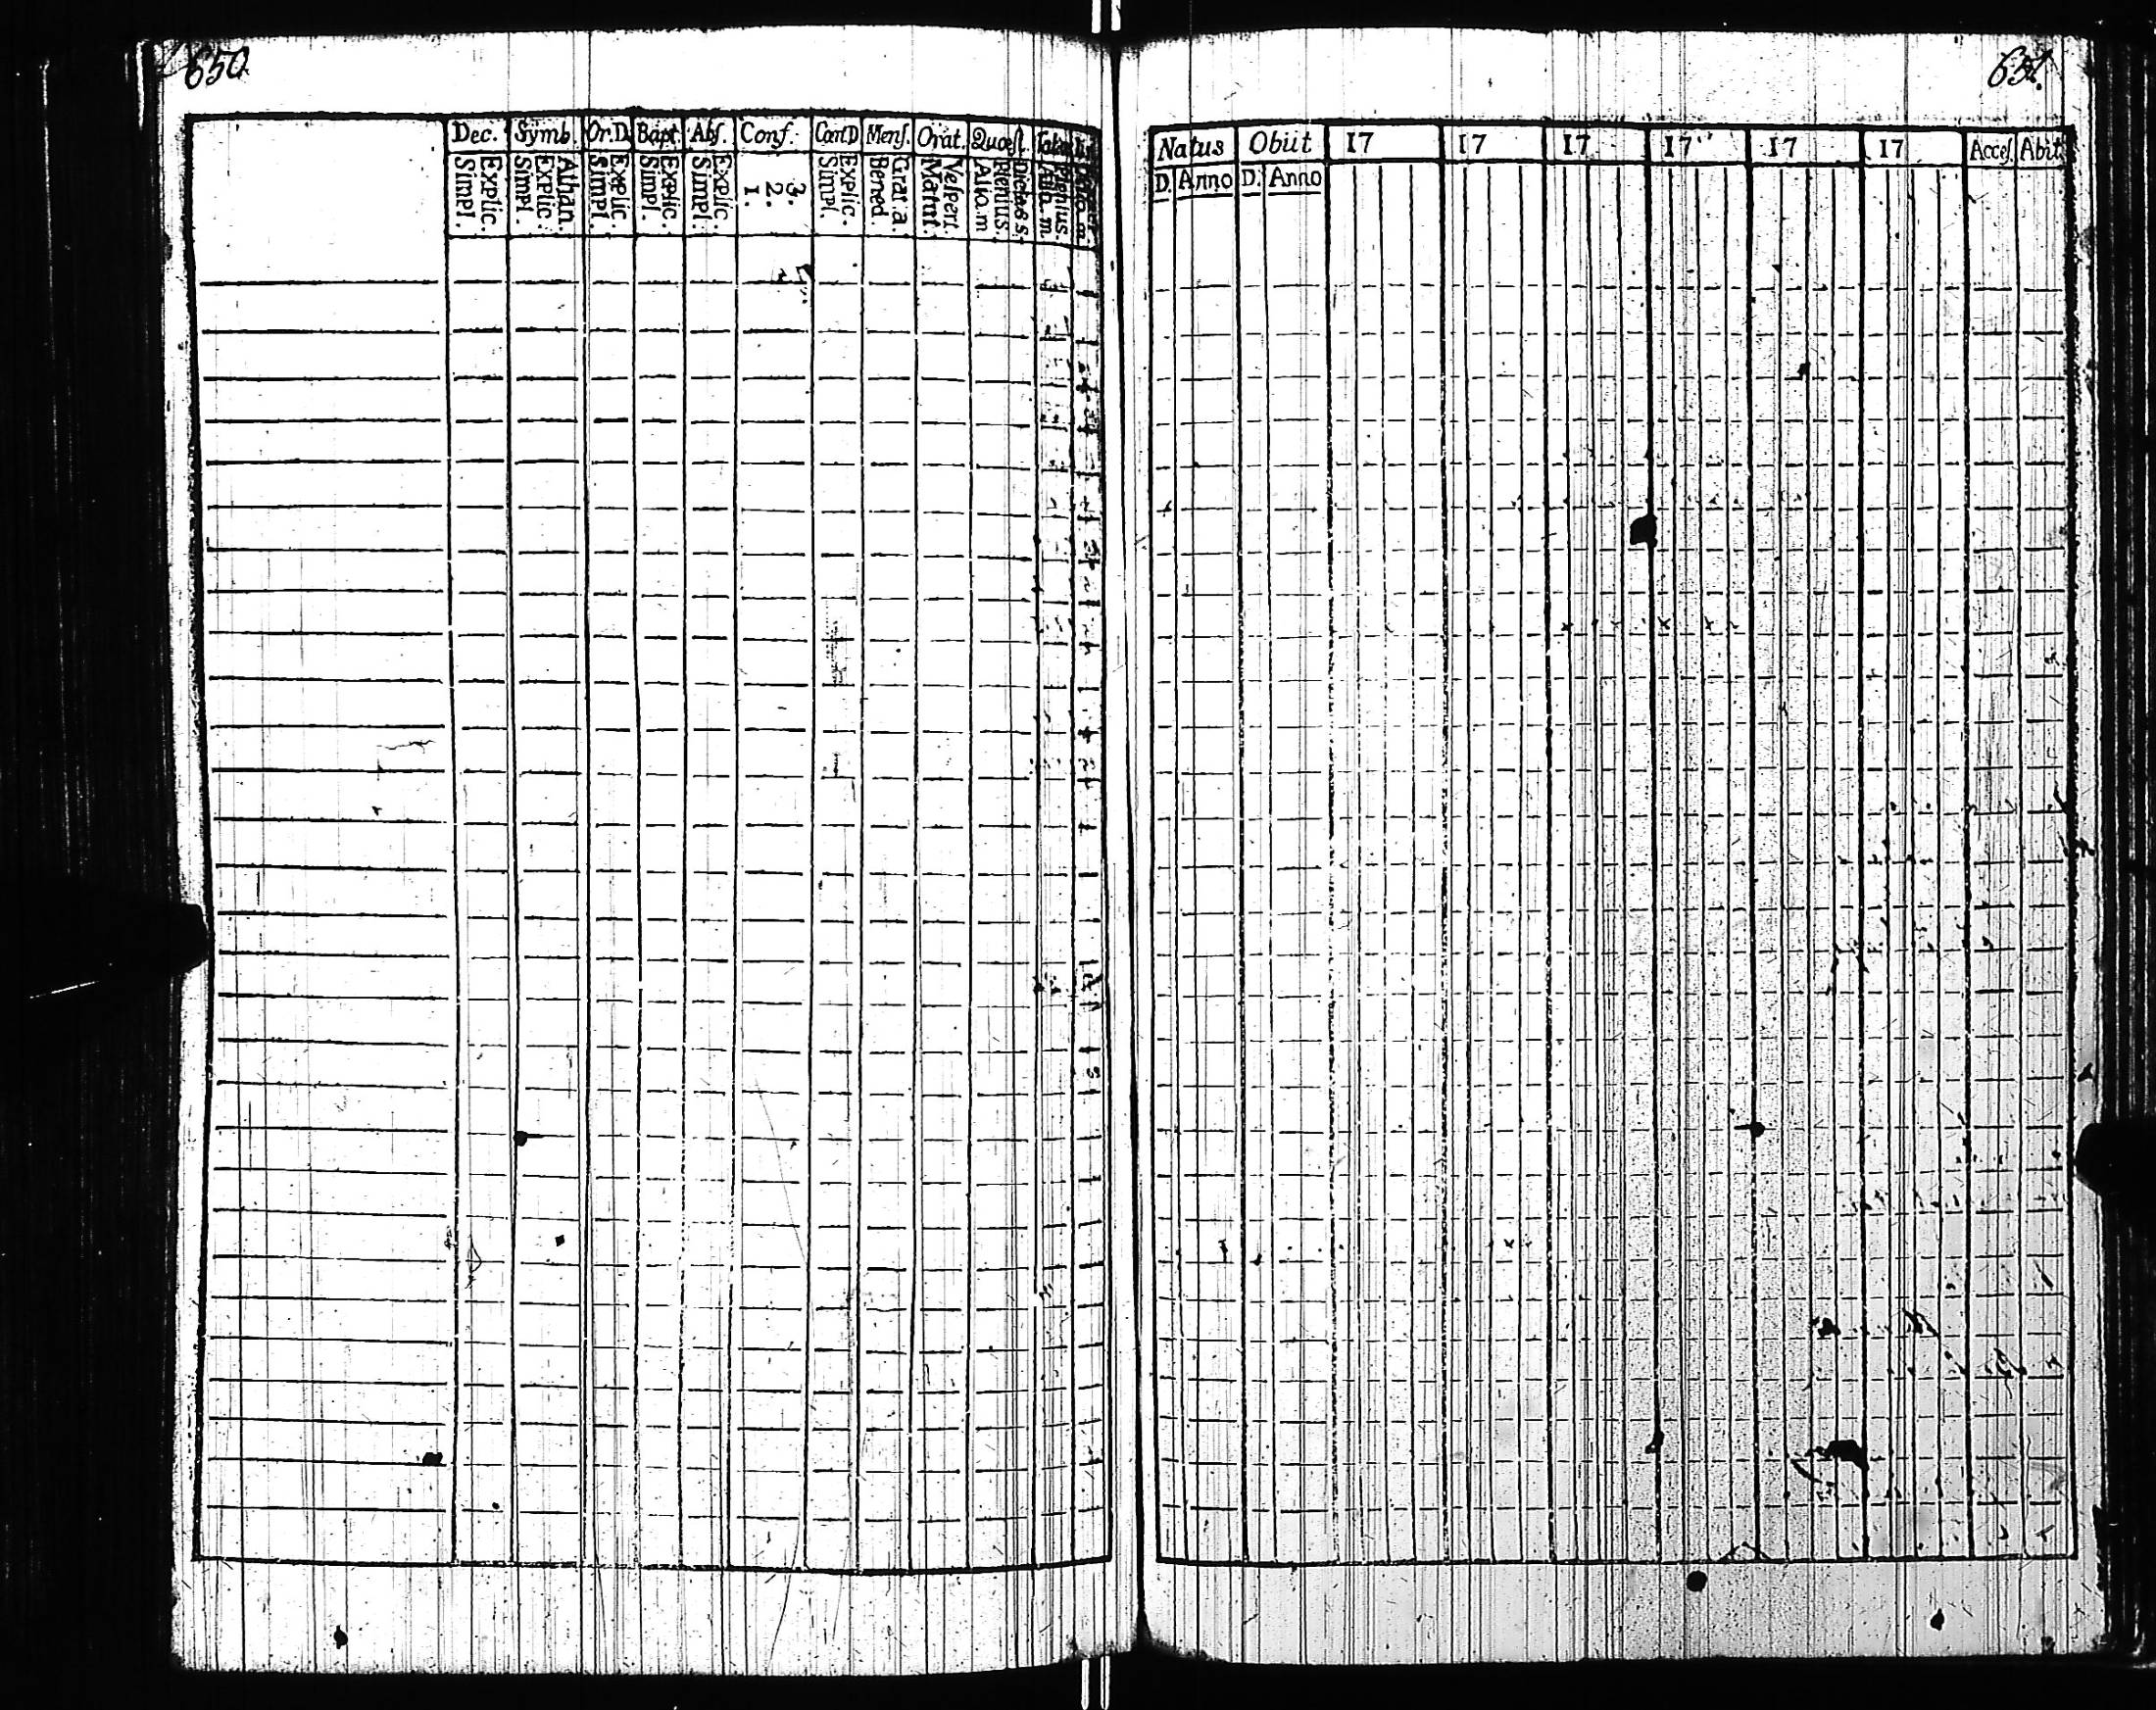 650
651.
Dec. Symb. Or.D. Bapt. Abs. Conf. Cœn.D Mens. Orat. Quæst.
Explic. Simpl.
Athan. Explic. Simpl.
Explic. Simpl.
Explic. Simpl.
Explic. Simpl.
3. 2. 1.
Explic. Simpl.
Grat. a. Bened.
Vespert. Matut.
Dictas s. Plenius. Aliq. m
Plenius. Aliq. m.
Natus Obiit 17 17 17 17 17 17 Acces. Abit.
D. Anno D. Anno